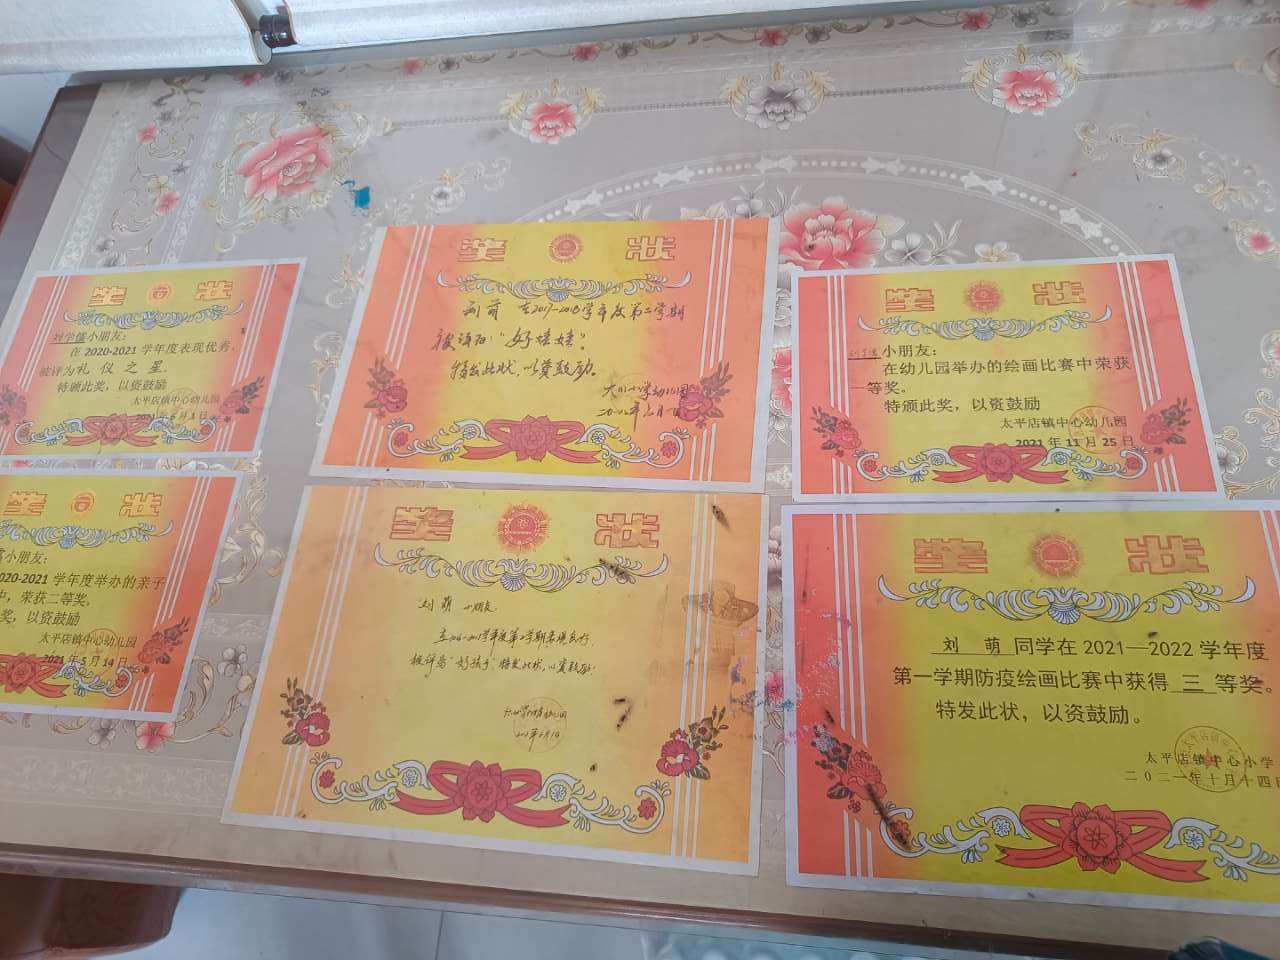 奖状
刘学儒小朋友：
在 2020-2021 学年度表现优秀，
被评为礼 仪 之 星
特颁此奖，以资鼓励
太平店镇中心幼儿园
2021 年 6 月 1 日
奖状
刘萌 在2017-2018学年度第二学期
被评为"好娃娃"
特发此状，以资鼓励.
奖状
小朋友：
在幼儿园举办的绘画比赛中荣获
一等奖。
特颁此奖，以资鼓励
太平店镇中心幼儿园
2021 年 11 月 25 日
奖状
小朋友：
2020-2021 学年度举办的亲子
中，荣获二等奖。
奖，以资鼓励
太平店镇中心幼儿园
2021 年 5 月 14 日
奖状
刘萌 小朋友
在2016-2017学年度第二学期表现良好
被评为"好孩子"特发此状，以资鼓励.
奖状
刘 萌 同学在 2021—2022 学年度
第一学期防疫绘画比赛中获得 三 等奖。
特发此状，以资鼓励。
太平店镇中心小学
二〇二一年十月十四日